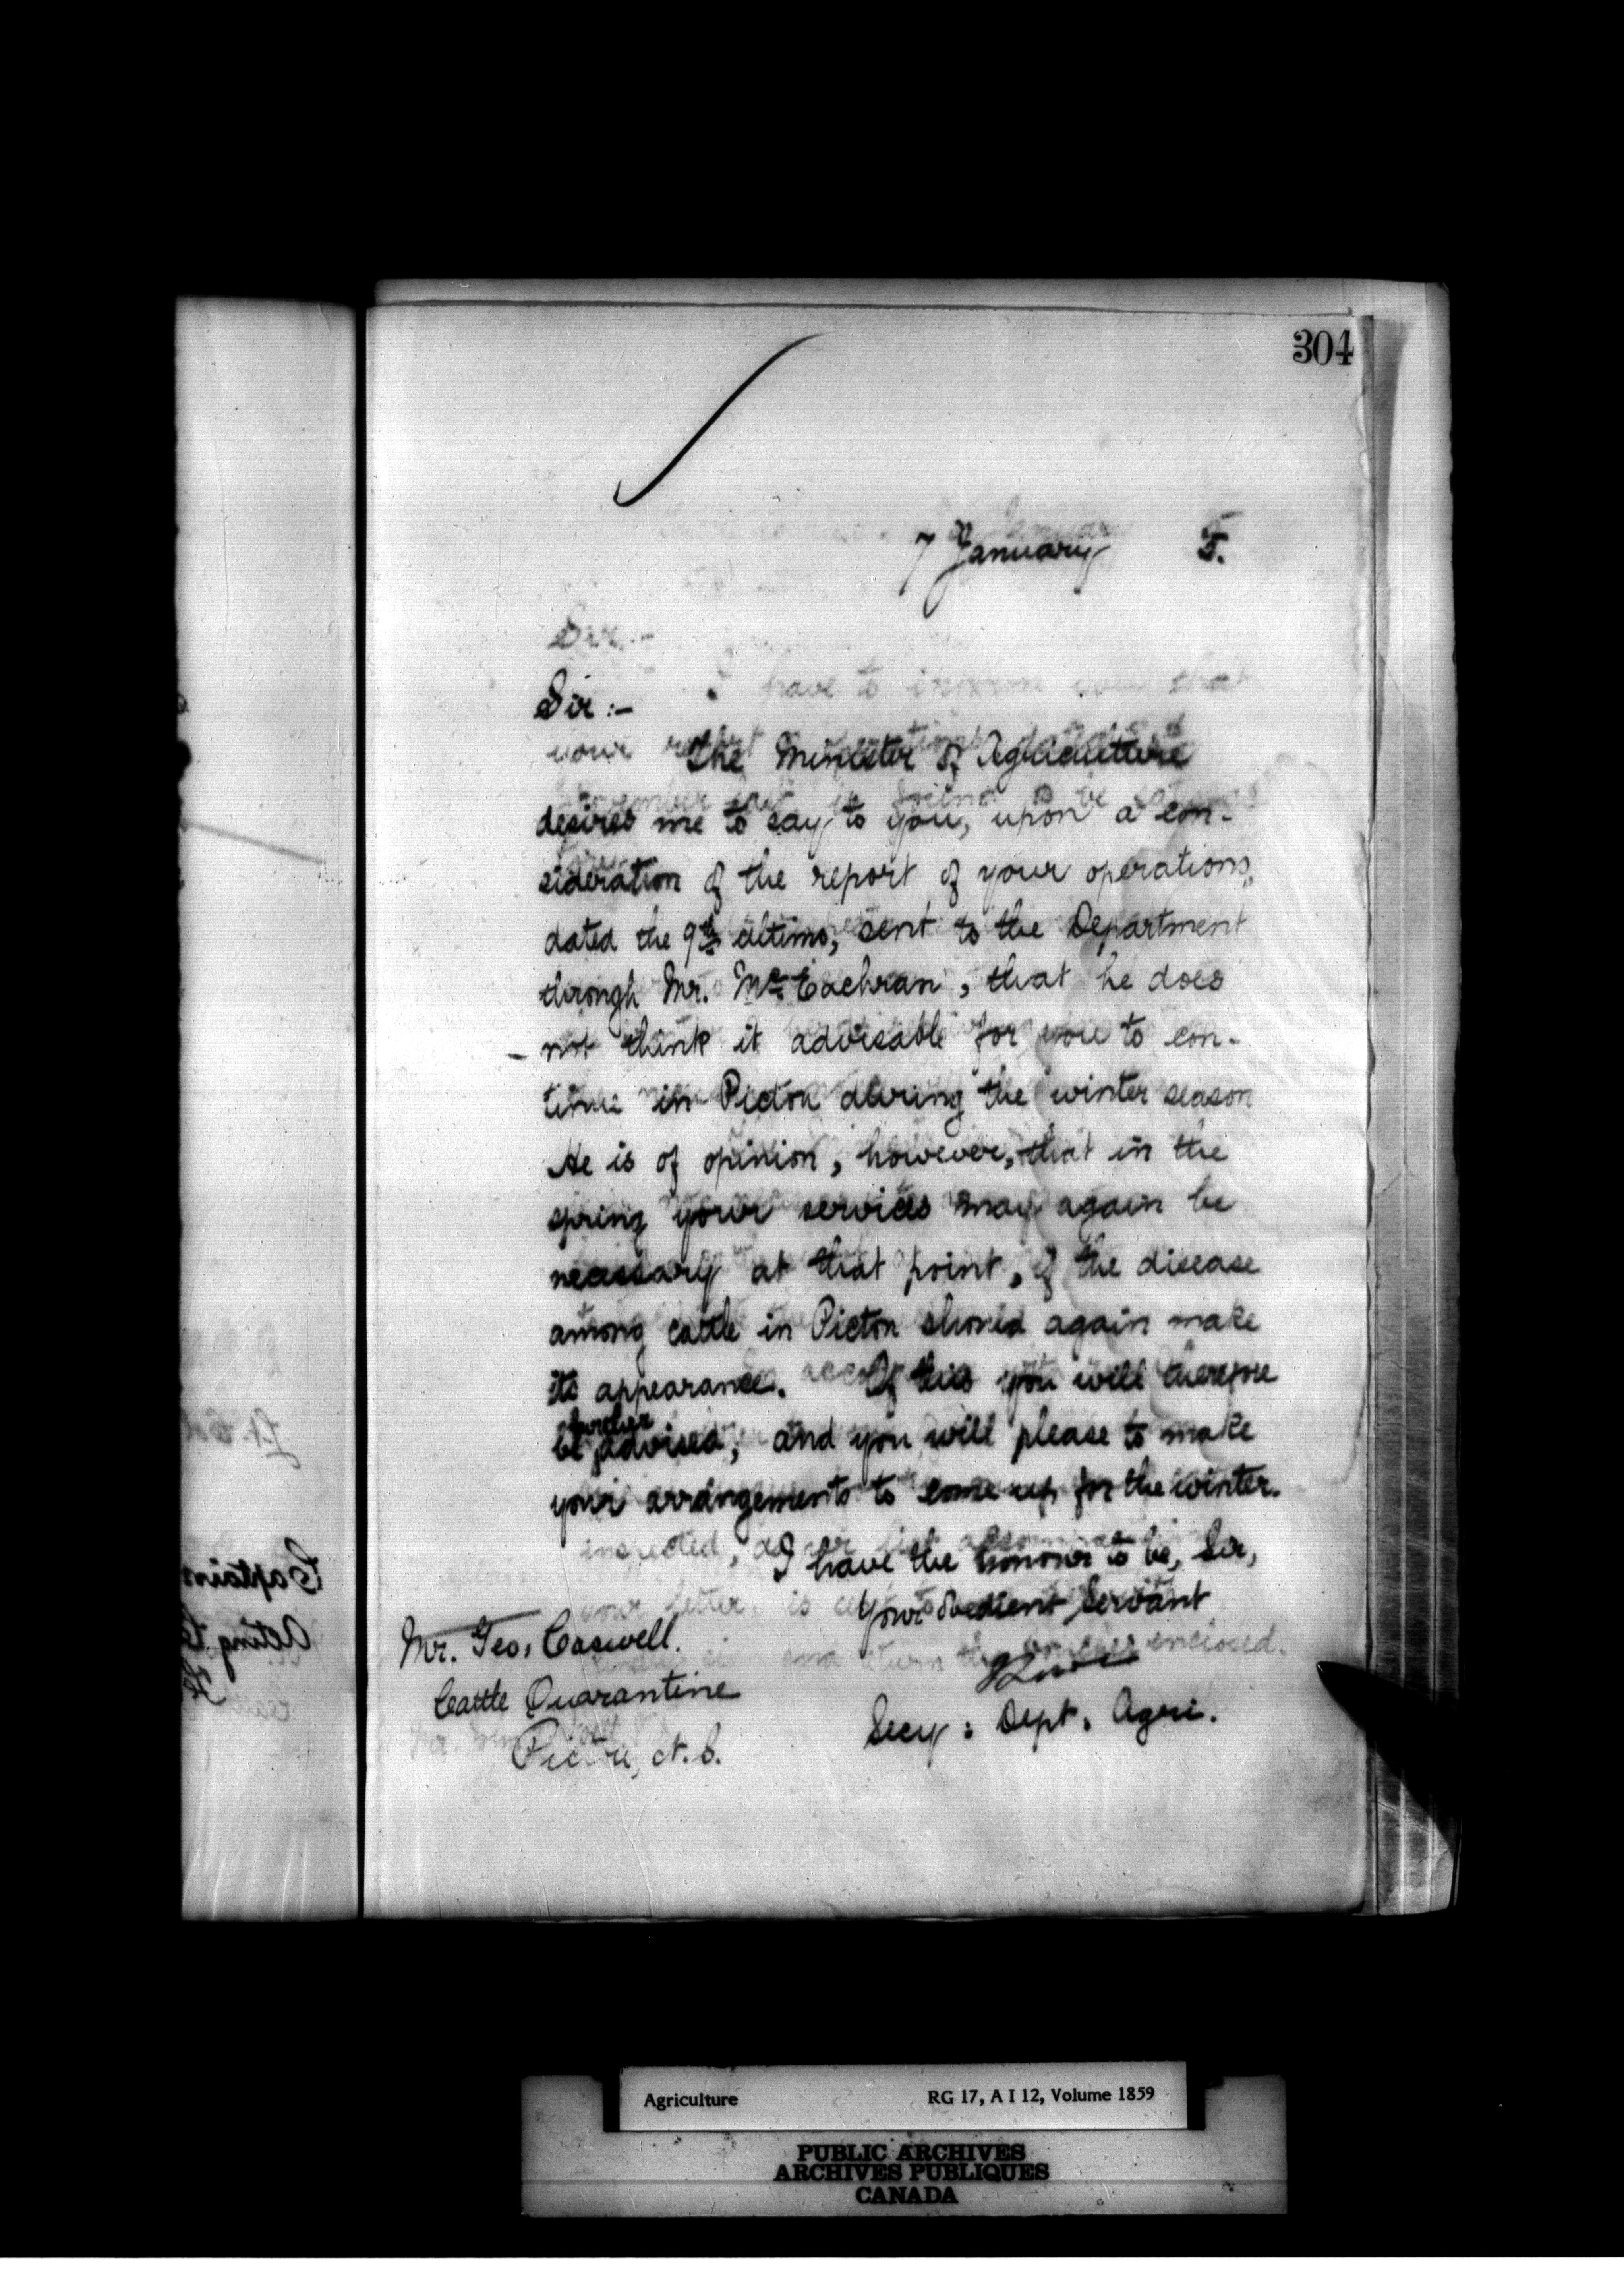 304
7 January 5.
Sir:-
The Minister of Agriculture
desires me to say to you, upon a con-
sideration of the report of your operations,
dated the 9th ultimo, sent to the Department
through Mr. McEachran, that he does
not think it advisable for you to con-
tinue in Pictou during the winter season
He is of opinion, however, that in the
spring your services may again be
necessary at that point, if the disease
among cattle in Pictou should again make
its appearance. Of this you will therefore
be further advised, and you will please to make
your arrangements to come up for the winter.
I have the honour to be, Sir,
Your obedient Servant
Secy: Dept. Agri.
Mr. Geo. Caswell.
Cattle Quarantine
Pictou, N.S.
Captain
Acting
Agriculture RG 17, A I 12, Volume 1859
PUBLIC ARCHIVES
ARCHIVES PUBLIQUES
CANADA